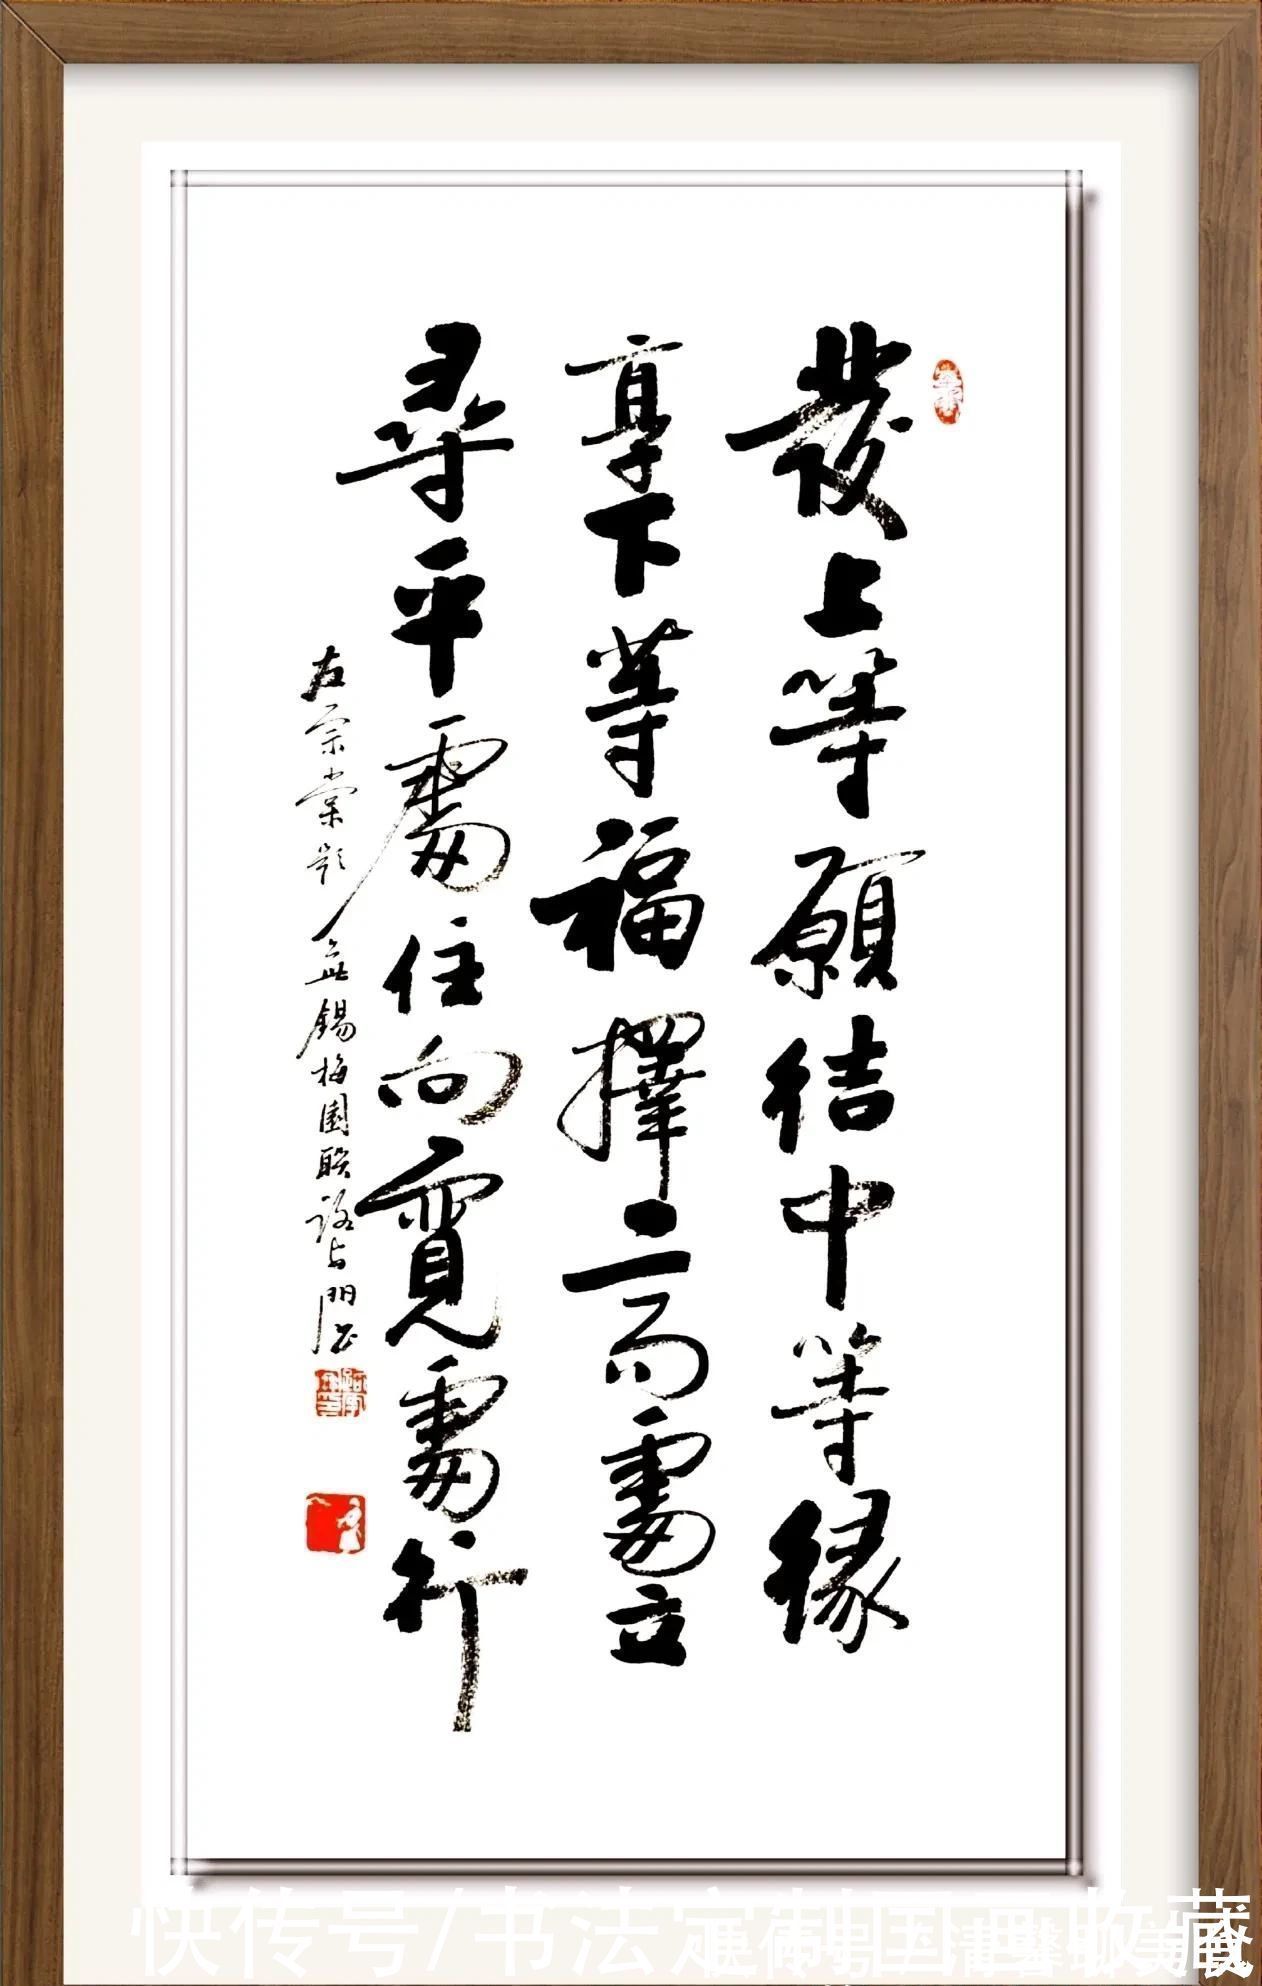 發上等願結中等緣
享下等福擇高處立
尋平處住向寬處行
左宗棠題無錫梅園聯
快传号/书法定制国画收藏